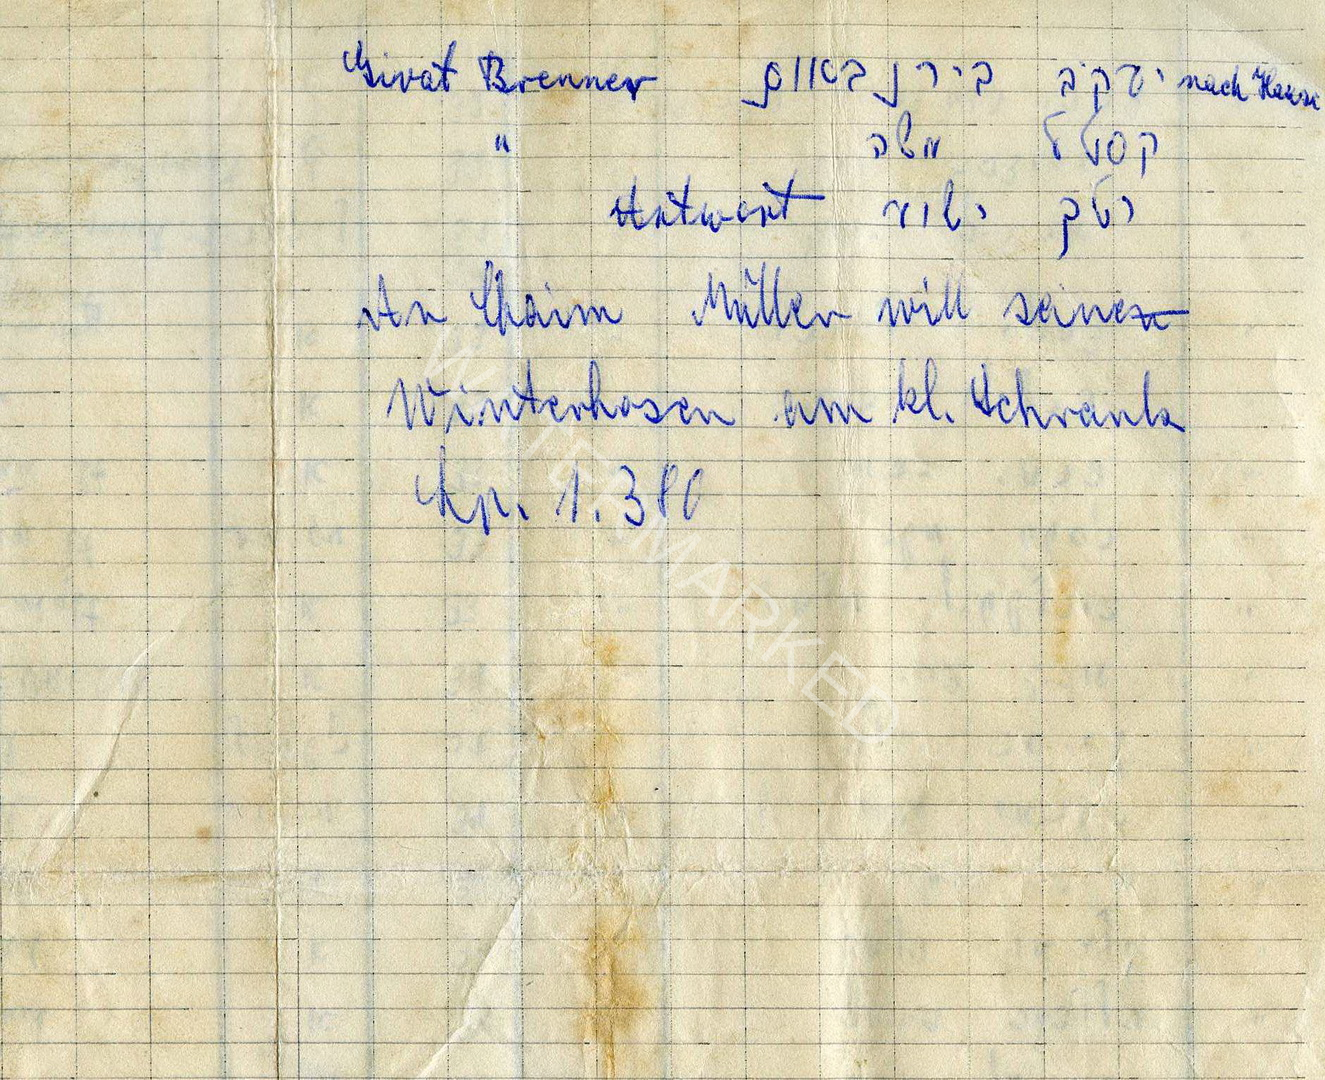 Givat Brenner בירנבאום יעקב nach Hause
" משה קסטל
Antwort
An Chaim Müller will seine
Winterhosen am kl. Schrank
Ap. 1.380
WATERMARKED